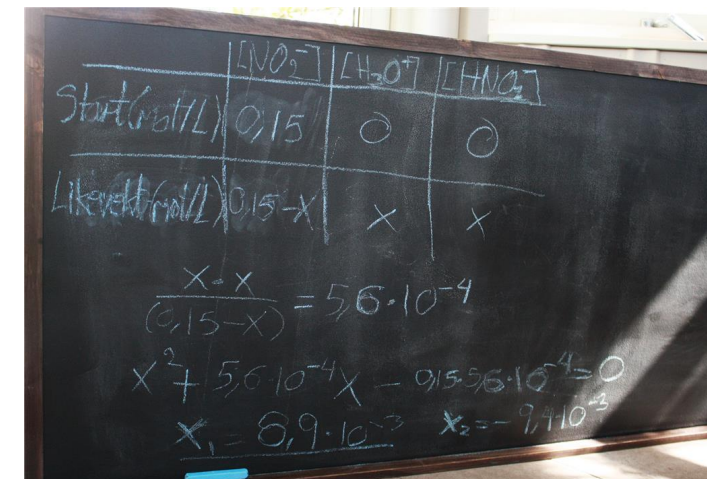 [NO₂⁻] [H₃O⁺] [HNO₂]
Start(mol/L) 0,15 0 0
Likevekt(mol/L) 0,15-x x x
x·x / (0,15-x) = 5,6·10⁻⁴
x² + 5,6·10⁻⁴x - 0,15·5,6·10⁻⁴=0
x₁ = 8,9·10⁻³ x₂=-9,4·10⁻³